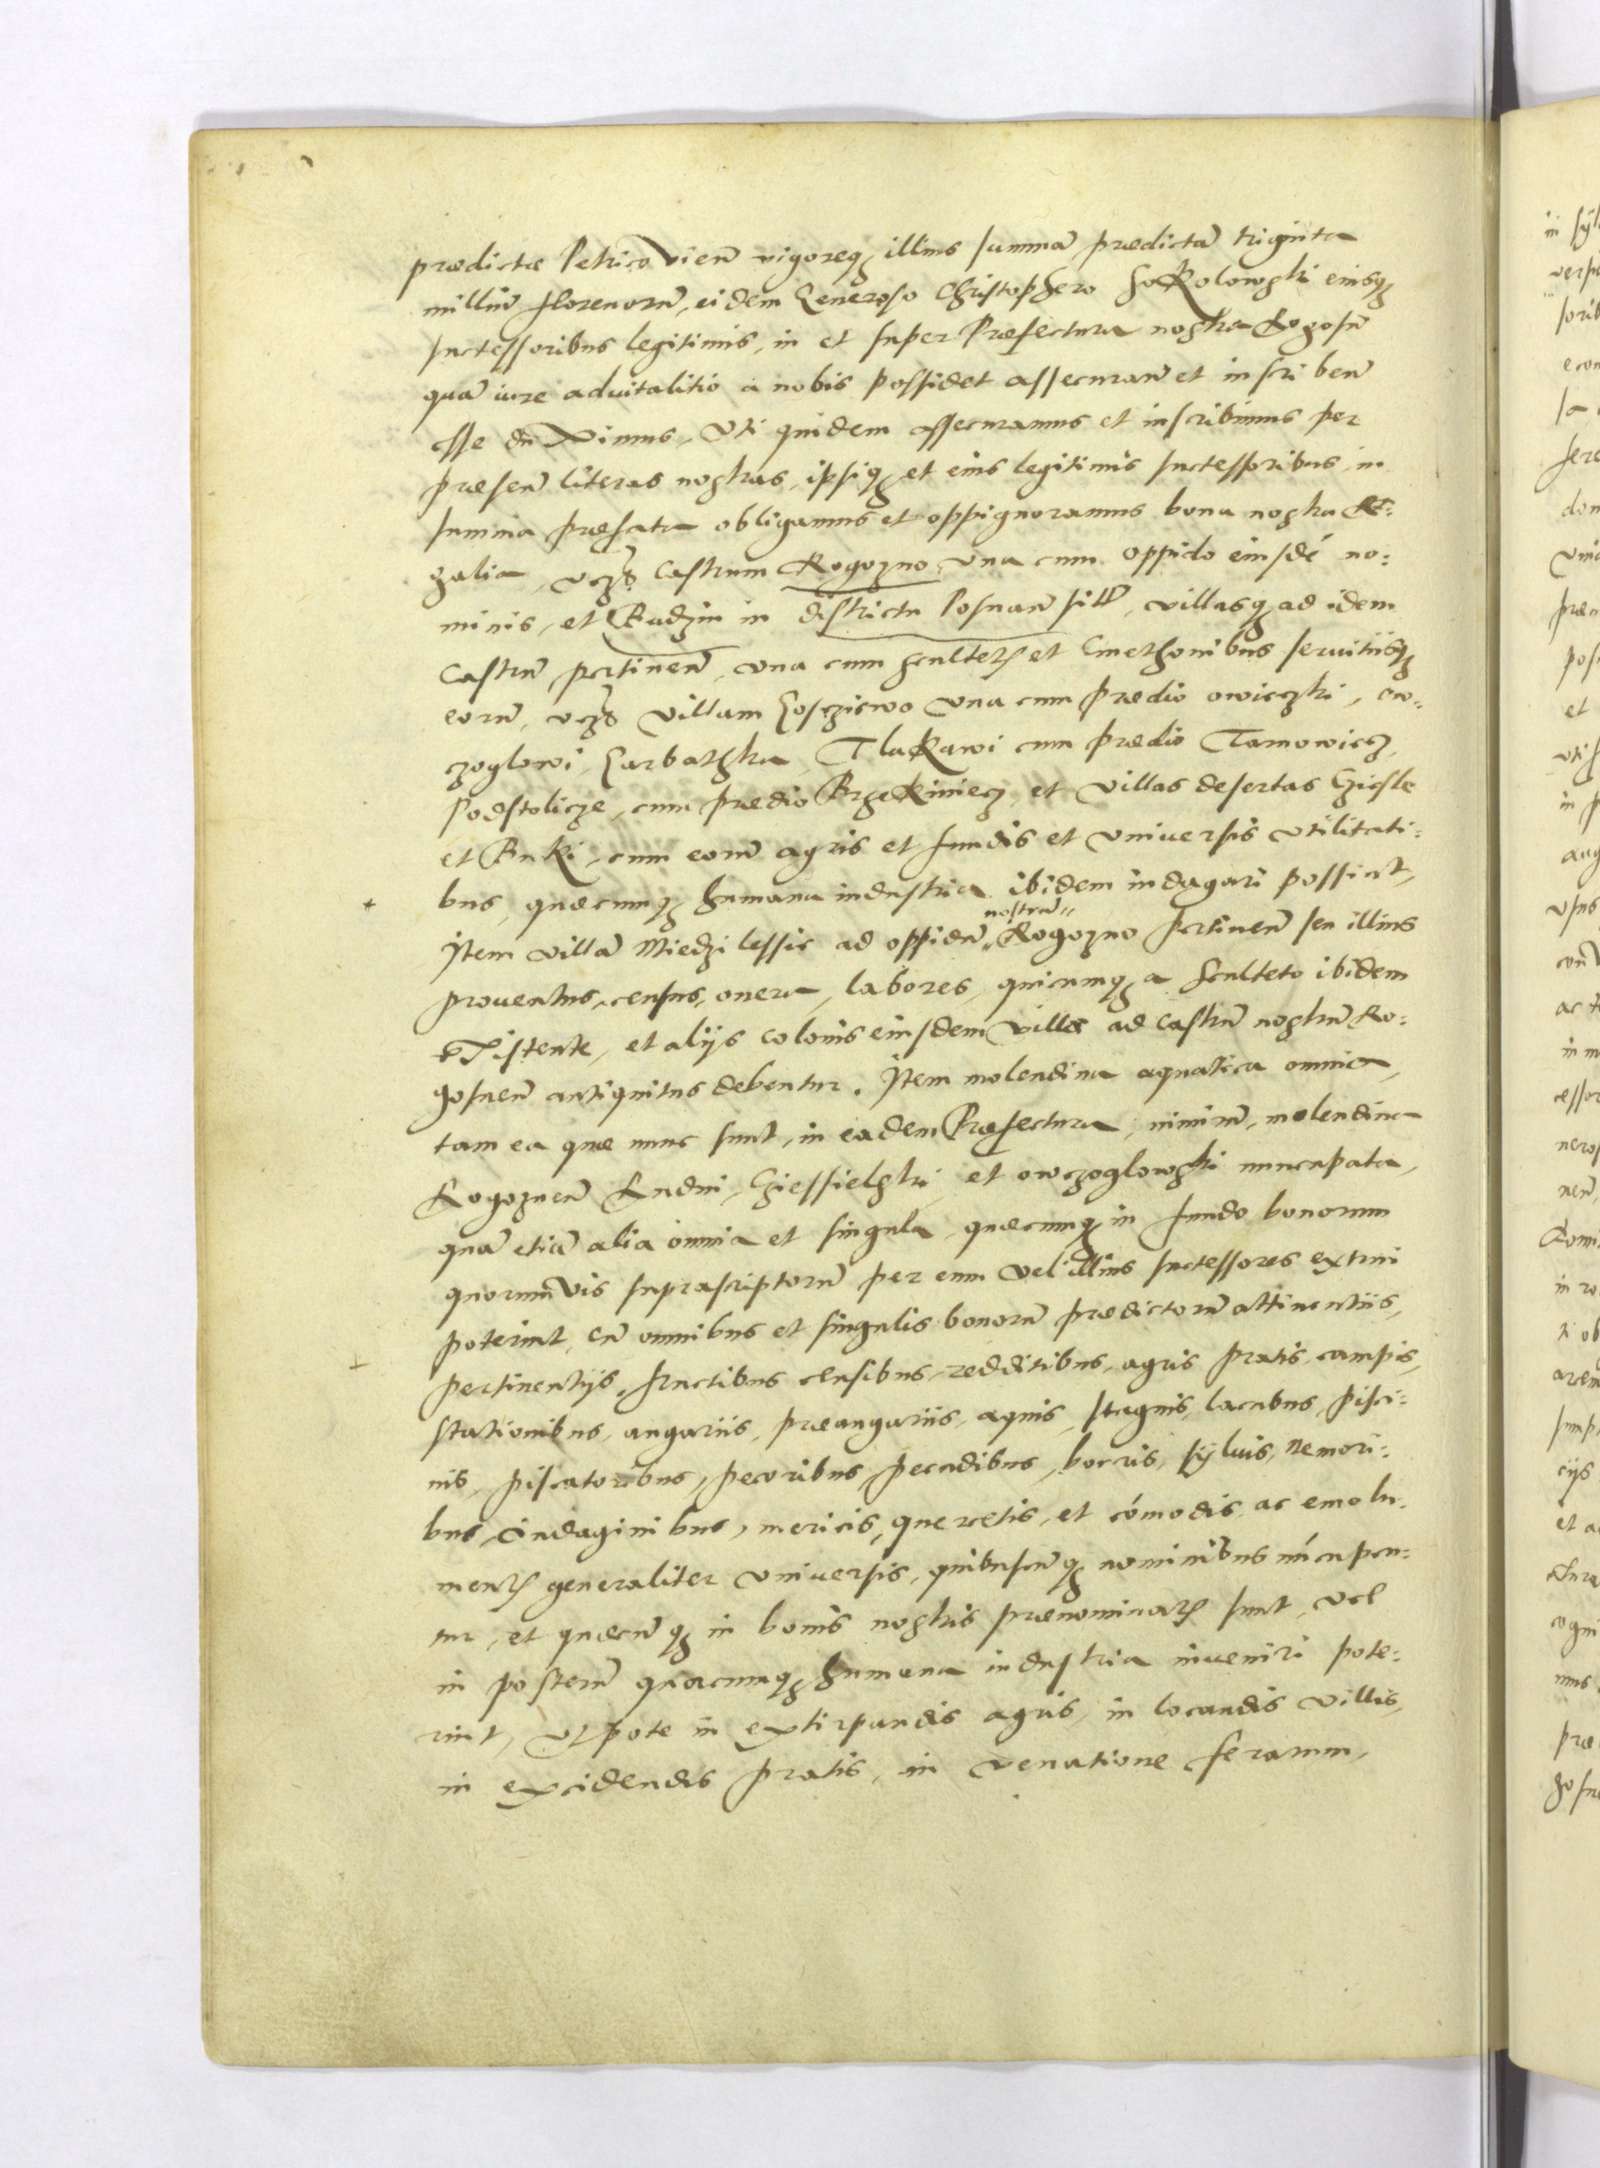 prædictæ Petricovien̄ vigoreq3 illius summā prædictā triginta
milliū florenorū, eidem Generoso Christophero Sokolowski eiusq3
successoribus legitimis, in et super Præfectura nostra Rogosn̄
quā iure advitalitio a nobis possidet assecuran̄ et inscriben̄
esse duximus, Uti quidem assecuramus et inscribimus per
præsen̄ literas nostras, ipsiq3 et eius legitimis successoribus in
summa præfata obligamus et oppignoramus bona nostra Re-
galia, vcz3 Castrum Rogozno una cum oppido eiusdē no-
minis, et Budzin in districtu Posnan̄ sitt, villasq3 ad idem
Castrū pertinen̄, una cum scultet̄ et Cmethonibus servitiisq3
eorū, vcz3 Villam Gosciewo una cum prædio owieczki, ow-
czoglowi, Garbatzka, Tlukawi cum prædio Tarnowiecz,
Podstolicze, cum prædio Brzekiniecz, et villas desertas Cziesle
et Buki, cum eorū agris et fundis et universis utilitati-
bus, quæcunq3 humana industria ibidem indagari possint,
Item villā Miedzilessie ad oppidū nostrū Rogozno pertinen̄ seu illius
proventus, census, onera, labores, quicunq3 a sculteto ibidem
existente, et alijs colonis eiusdem villæ ad Castrū nostrū Ro-
gosnen̄ antiquitus debentur. Item molendina aquatica omnia,
tam ea quæ nunc sunt, in eadem Præfectura, nimirū, molendina
Rogoznen̄ Rudni, Cziessielski et owczoglowski nuncupata,
quā etiā alia omnia et singula, quæcunq3 in fundo bonorum
quorumvis suprascriptorū per eum vel illius successores extrui
poterint, cū omnibus et singulis bonorū prædictorū attinentiis,
pertinentijs, fructibus censibus, redditibus, agris pratis, campis,
stationibus, angariis, præangariis, aquis, stagnis, lacubus, pisci-
nis, piscatoribus, pecoribus, pecudibus, borris, sylvis, nemori-
bus, indaginibus, mericis, quercetis, et cōmodis ac emolu-
ment̄ generaliter universis, quibuscūq3 nominibus nūcupen-
tur, et quæcūq3 in bonis nostris prænominat̄ sunt, vel
in posterū quacunq3 humana industria inveniri pote-
rint, utpote in extirpandis agris, in locandis villis,
in excidendis pratis, in venatione ferarum,